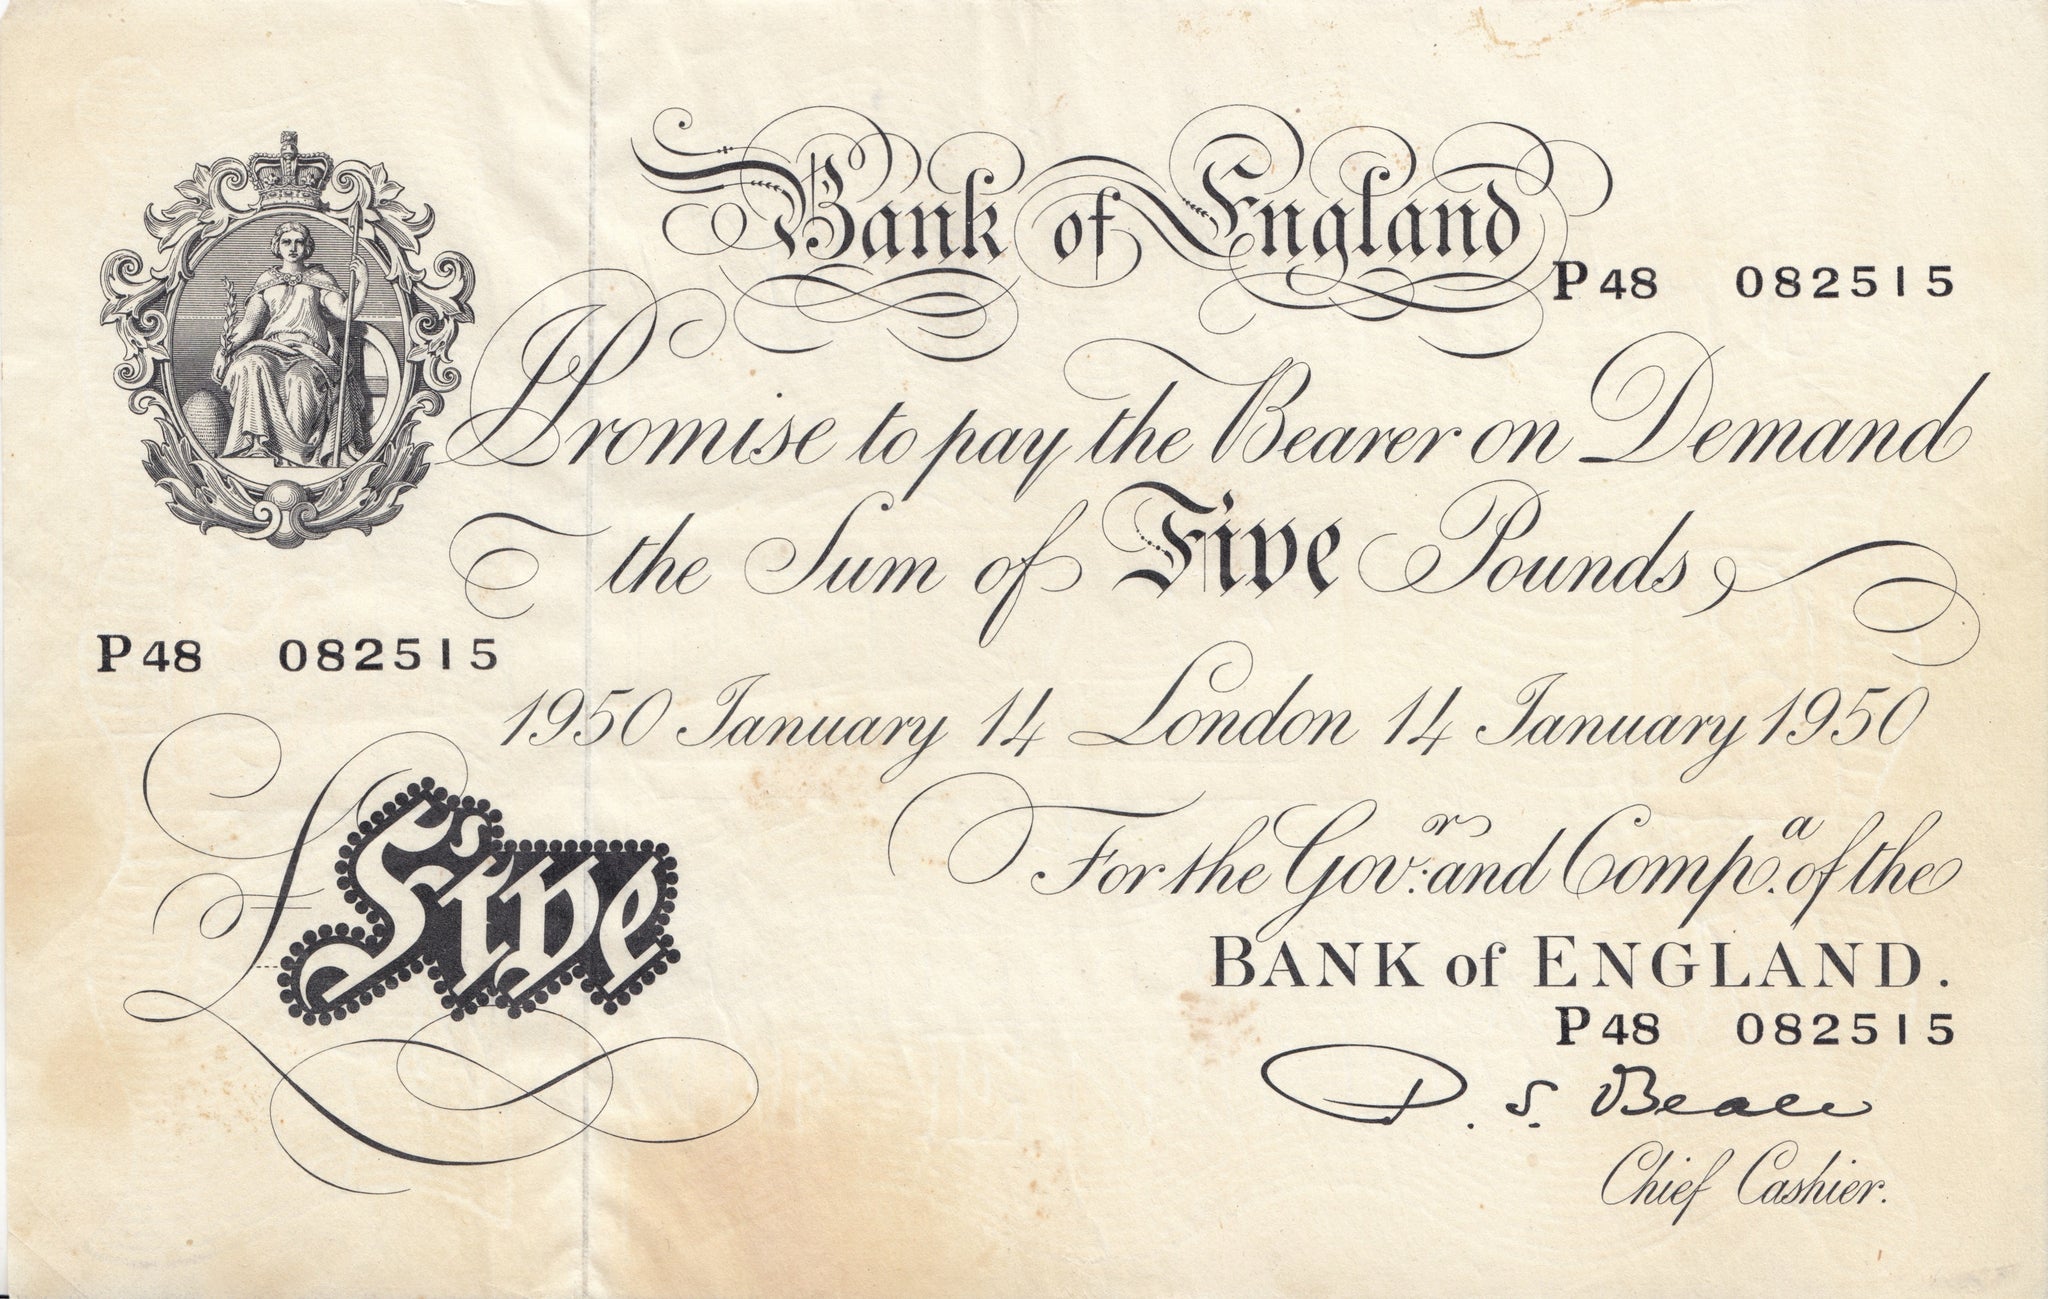 Bank of England
P48 082515
I Promise to pay the Bearer on Demand
the Sum of Five Pounds
P48 082515
1950 January 14 London 14 January 1950
For the Govr. and Compa. of the
BANK of ENGLAND.
£Five
P48 082515
P. S. Beale
Chief Cashier.